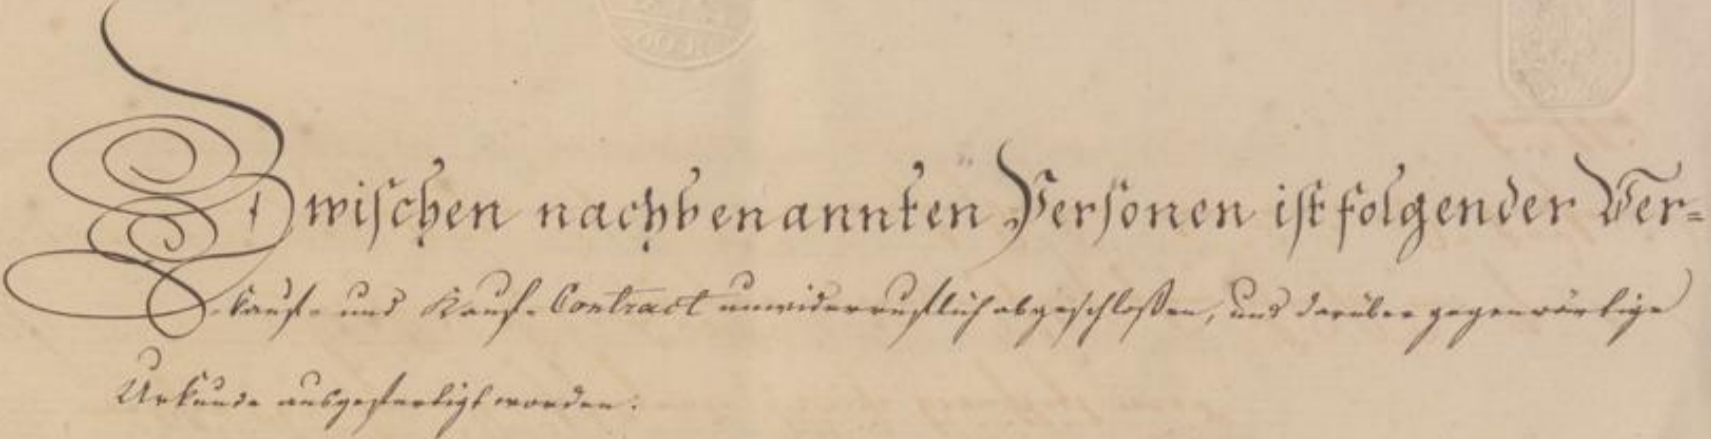 Zwischen nachbenannten Personen ist folgender Ver-
kauf- und Kauf-Contract unwiderruflich abgeschloßen, und darüber gegenwärtige
Urkunde ausgefertigt worden: